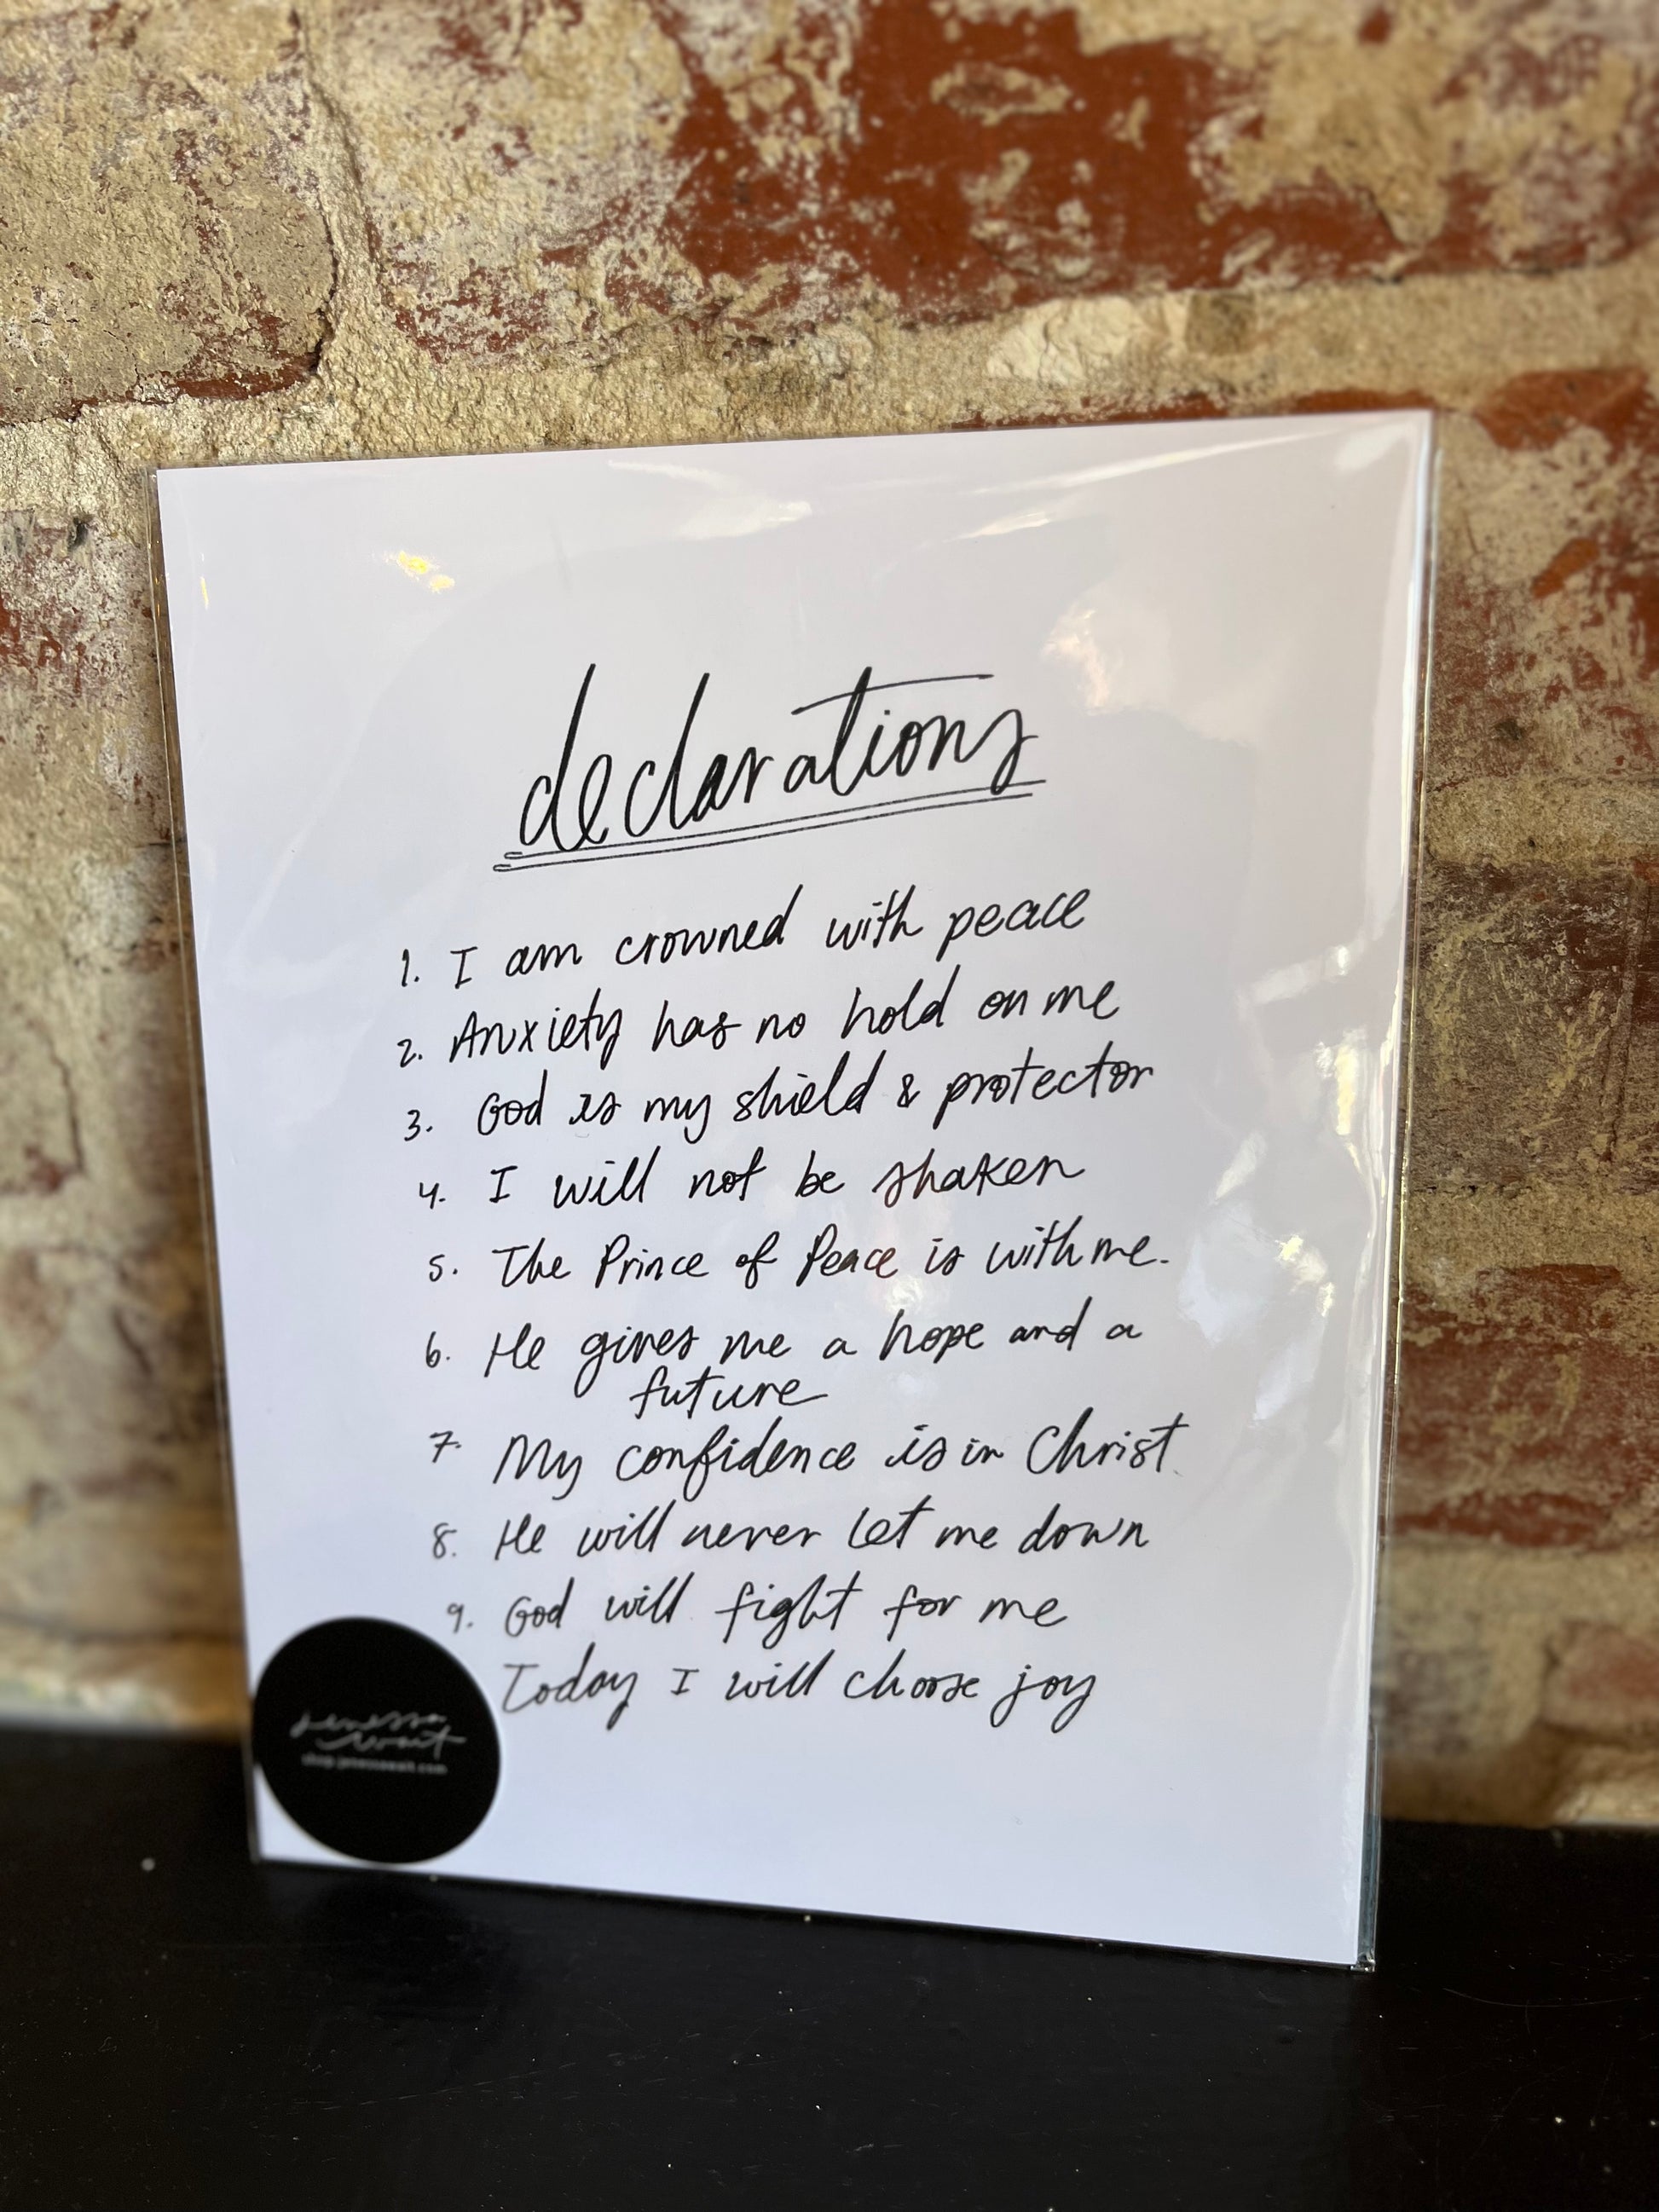 declarations
1. I am crowned with peace
2. Anxiety has no hold on me
3. God is my shield & protector
4. I will not be shaken
5. The Prince of Peace is with me.
6. He gives me a hope and a
future
7. My confidence is in Christ.
8. He will never let me down
9. God will fight for me
Today I will choose joy
jenessa
wait
shop.jenessawait.com